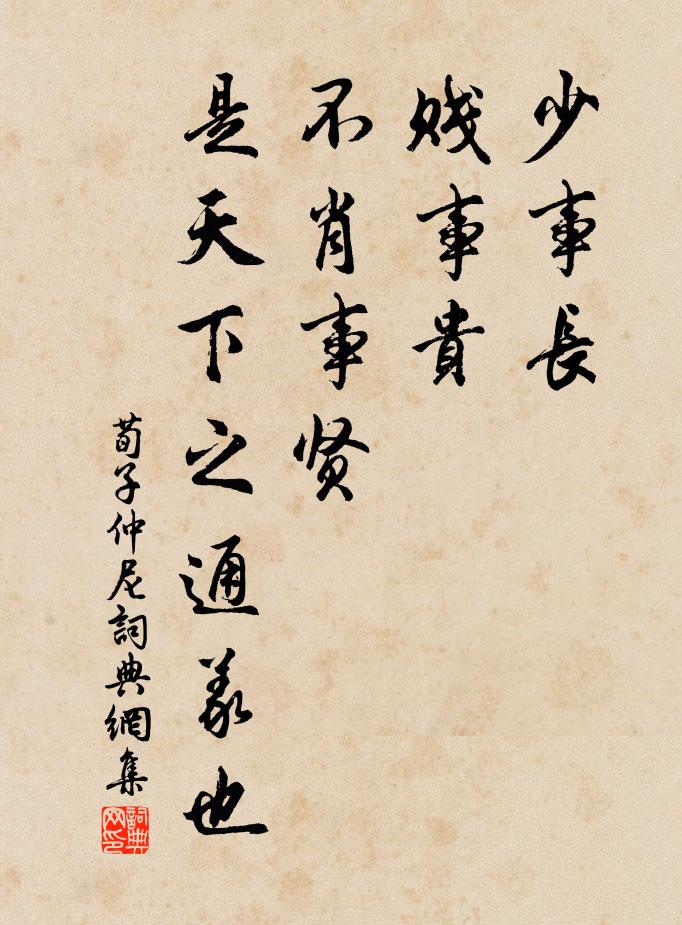 少事長
賤事貴
不肖事贤
是天下之通義也
荀子仲尼詞典網集
詞典网印